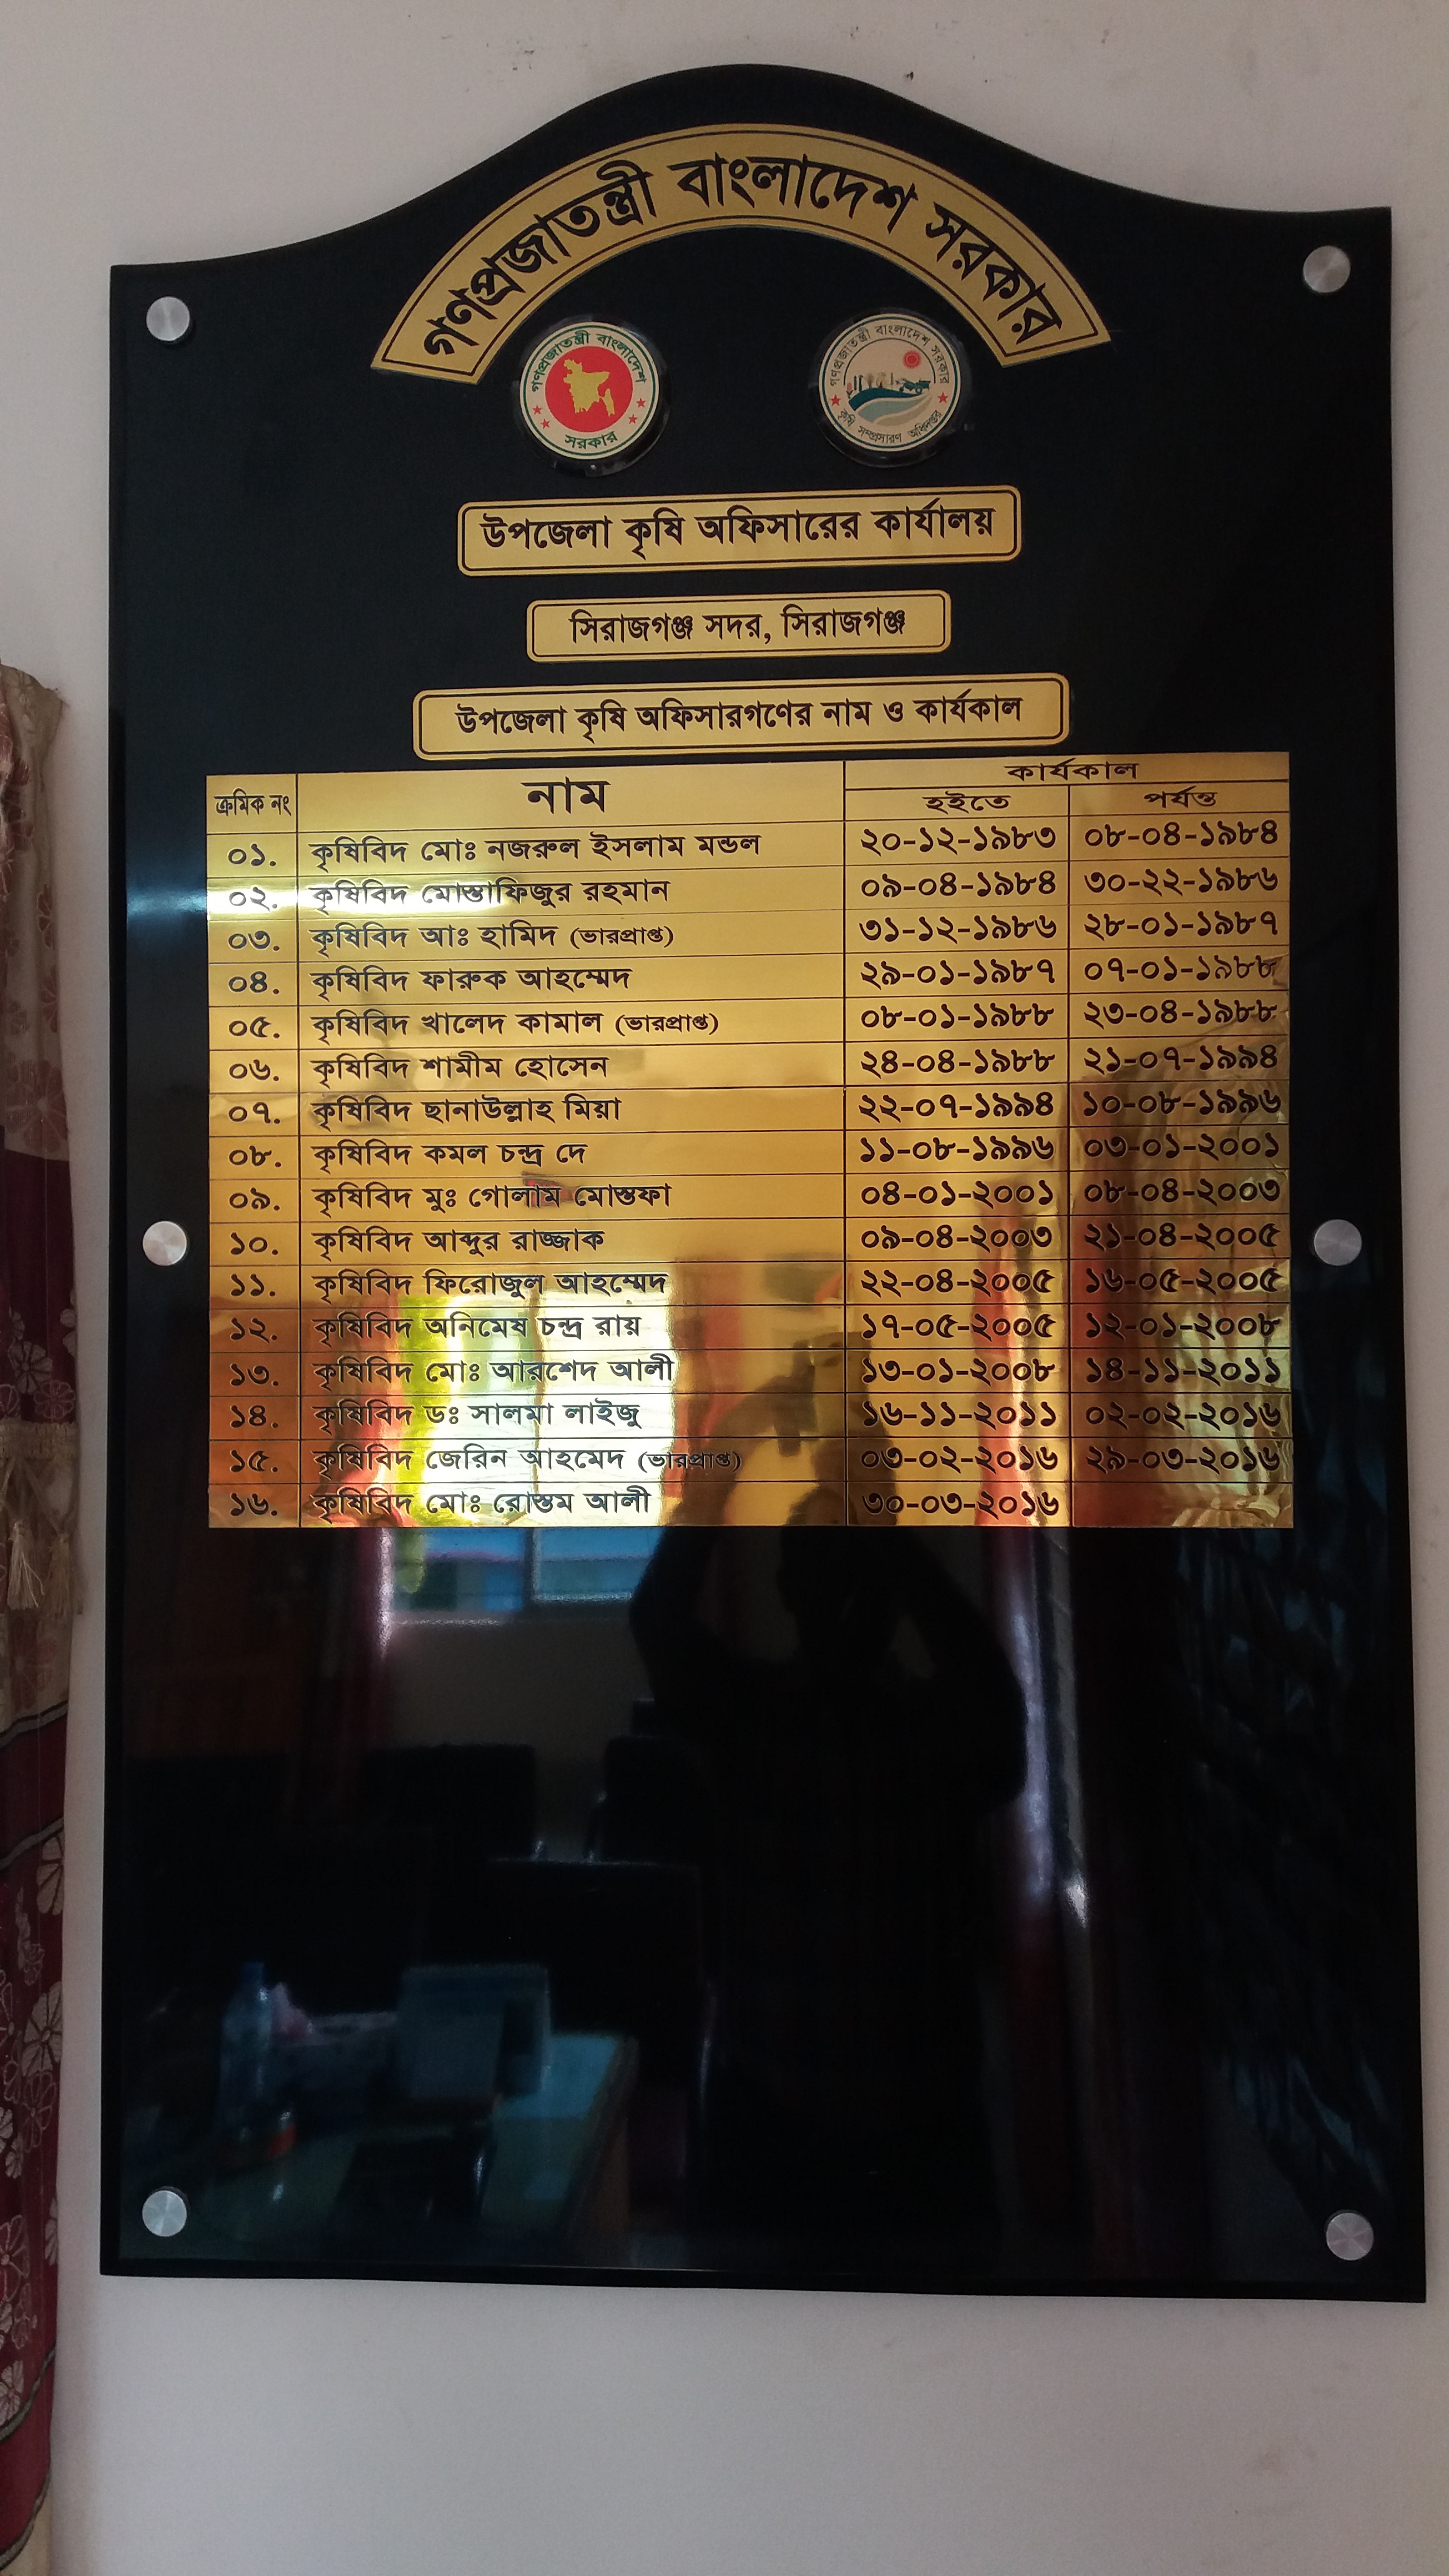 গণপ্রজাতন্ত্রী বাংলাদেশ সরকার
গণপ্রজাতন্ত্রী বাংলাদেশ
সরকার
গণপ্রজাতন্ত্রী বাংলাদেশ সরকার
কৃষি সম্প্রসারণ অধিদপ্তর
উপজেলা কৃষি অফিসারের কার্যালয়
সিরাজগঞ্জ সদর, সিরাজগঞ্জ
উপজেলা কৃষি অফিসারগণের নাম ও কার্যকাল
ক্রমিক নং নাম কার্যকাল
হইতে পর্যন্ত
০১. কৃষিবিদ মোঃ নজরুল ইসলাম মন্ডল ২০-১২-১৯৮৩ ০৮-০৪-১৯৮৪
০২. কৃষিবিদ মোস্তাফিজুর রহমান ০৯-০৪-১৯৮৪ ৩০-২২-১৯৮৬
০৩. কৃষিবিদ আঃ হামিদ (ভারপ্রাপ্ত) ৩১-১২-১৯৮৬ ২৮-০১-১৯৮৭
০৪. কৃষিবিদ ফারুক আহম্মেদ ২৯-০১-১৯৮৭ ০৭-০১-১৯৮৮
০৫. কৃষিবিদ খালেদ কামাল (ভারপ্রাপ্ত) ০৮-০১-১৯৮৮ ২৩-০৪-১৯৮৮
০৬. কৃষিবিদ শামীম হোসেন ২৪-০৪-১৯৮৮ ২১-০৭-১৯৯৪
০৭. কৃষিবিদ ছানাউল্লাহ মিয়া ২২-০৭-১৯৯৪ ১০-০৮-১৯৯৬
০৮. কৃষিবিদ কমল চন্দ্র দে ১১-০৮-১৯৯৬ ০৩-০১-২০০১
০৯. কৃষিবিদ মুঃ গোলাম মোস্তফা ০৪-০১-২০০১ ০৮-০৪-২০০৩
১০. কৃষিবিদ আব্দুর রাজ্জাক ০৯-০৪-২০০৩ ২১-০৪-২০০৫
১১. কৃষিবিদ ফিরোজুল আহম্মেদ ২২-০৪-২০০৫ ১৬-০৫-২০০৫
১২. কৃষিবিদ অনিমেষ চন্দ্র রায় ১৭-০৫-২০০৫ ১২-০১-২০০৮
১৩. কৃষিবিদ মোঃ আরশেদ আলী ১৩-০১-২০০৮ ১৪-১১-২০১১
১৪. কৃষিবিদ ডঃ সালমা লাইজু ১৬-১১-২০১১ ০২-০২-২০১৬
১৫. কৃষিবিদ জেরিন আহমেদ (ভারপ্রাপ্ত) ০৩-০২-২০১৬ ২৯-০৩-২০১৬
১৬. কৃষিবিদ মোঃ রোস্তম আলী ৩০-০৩-২০১৬